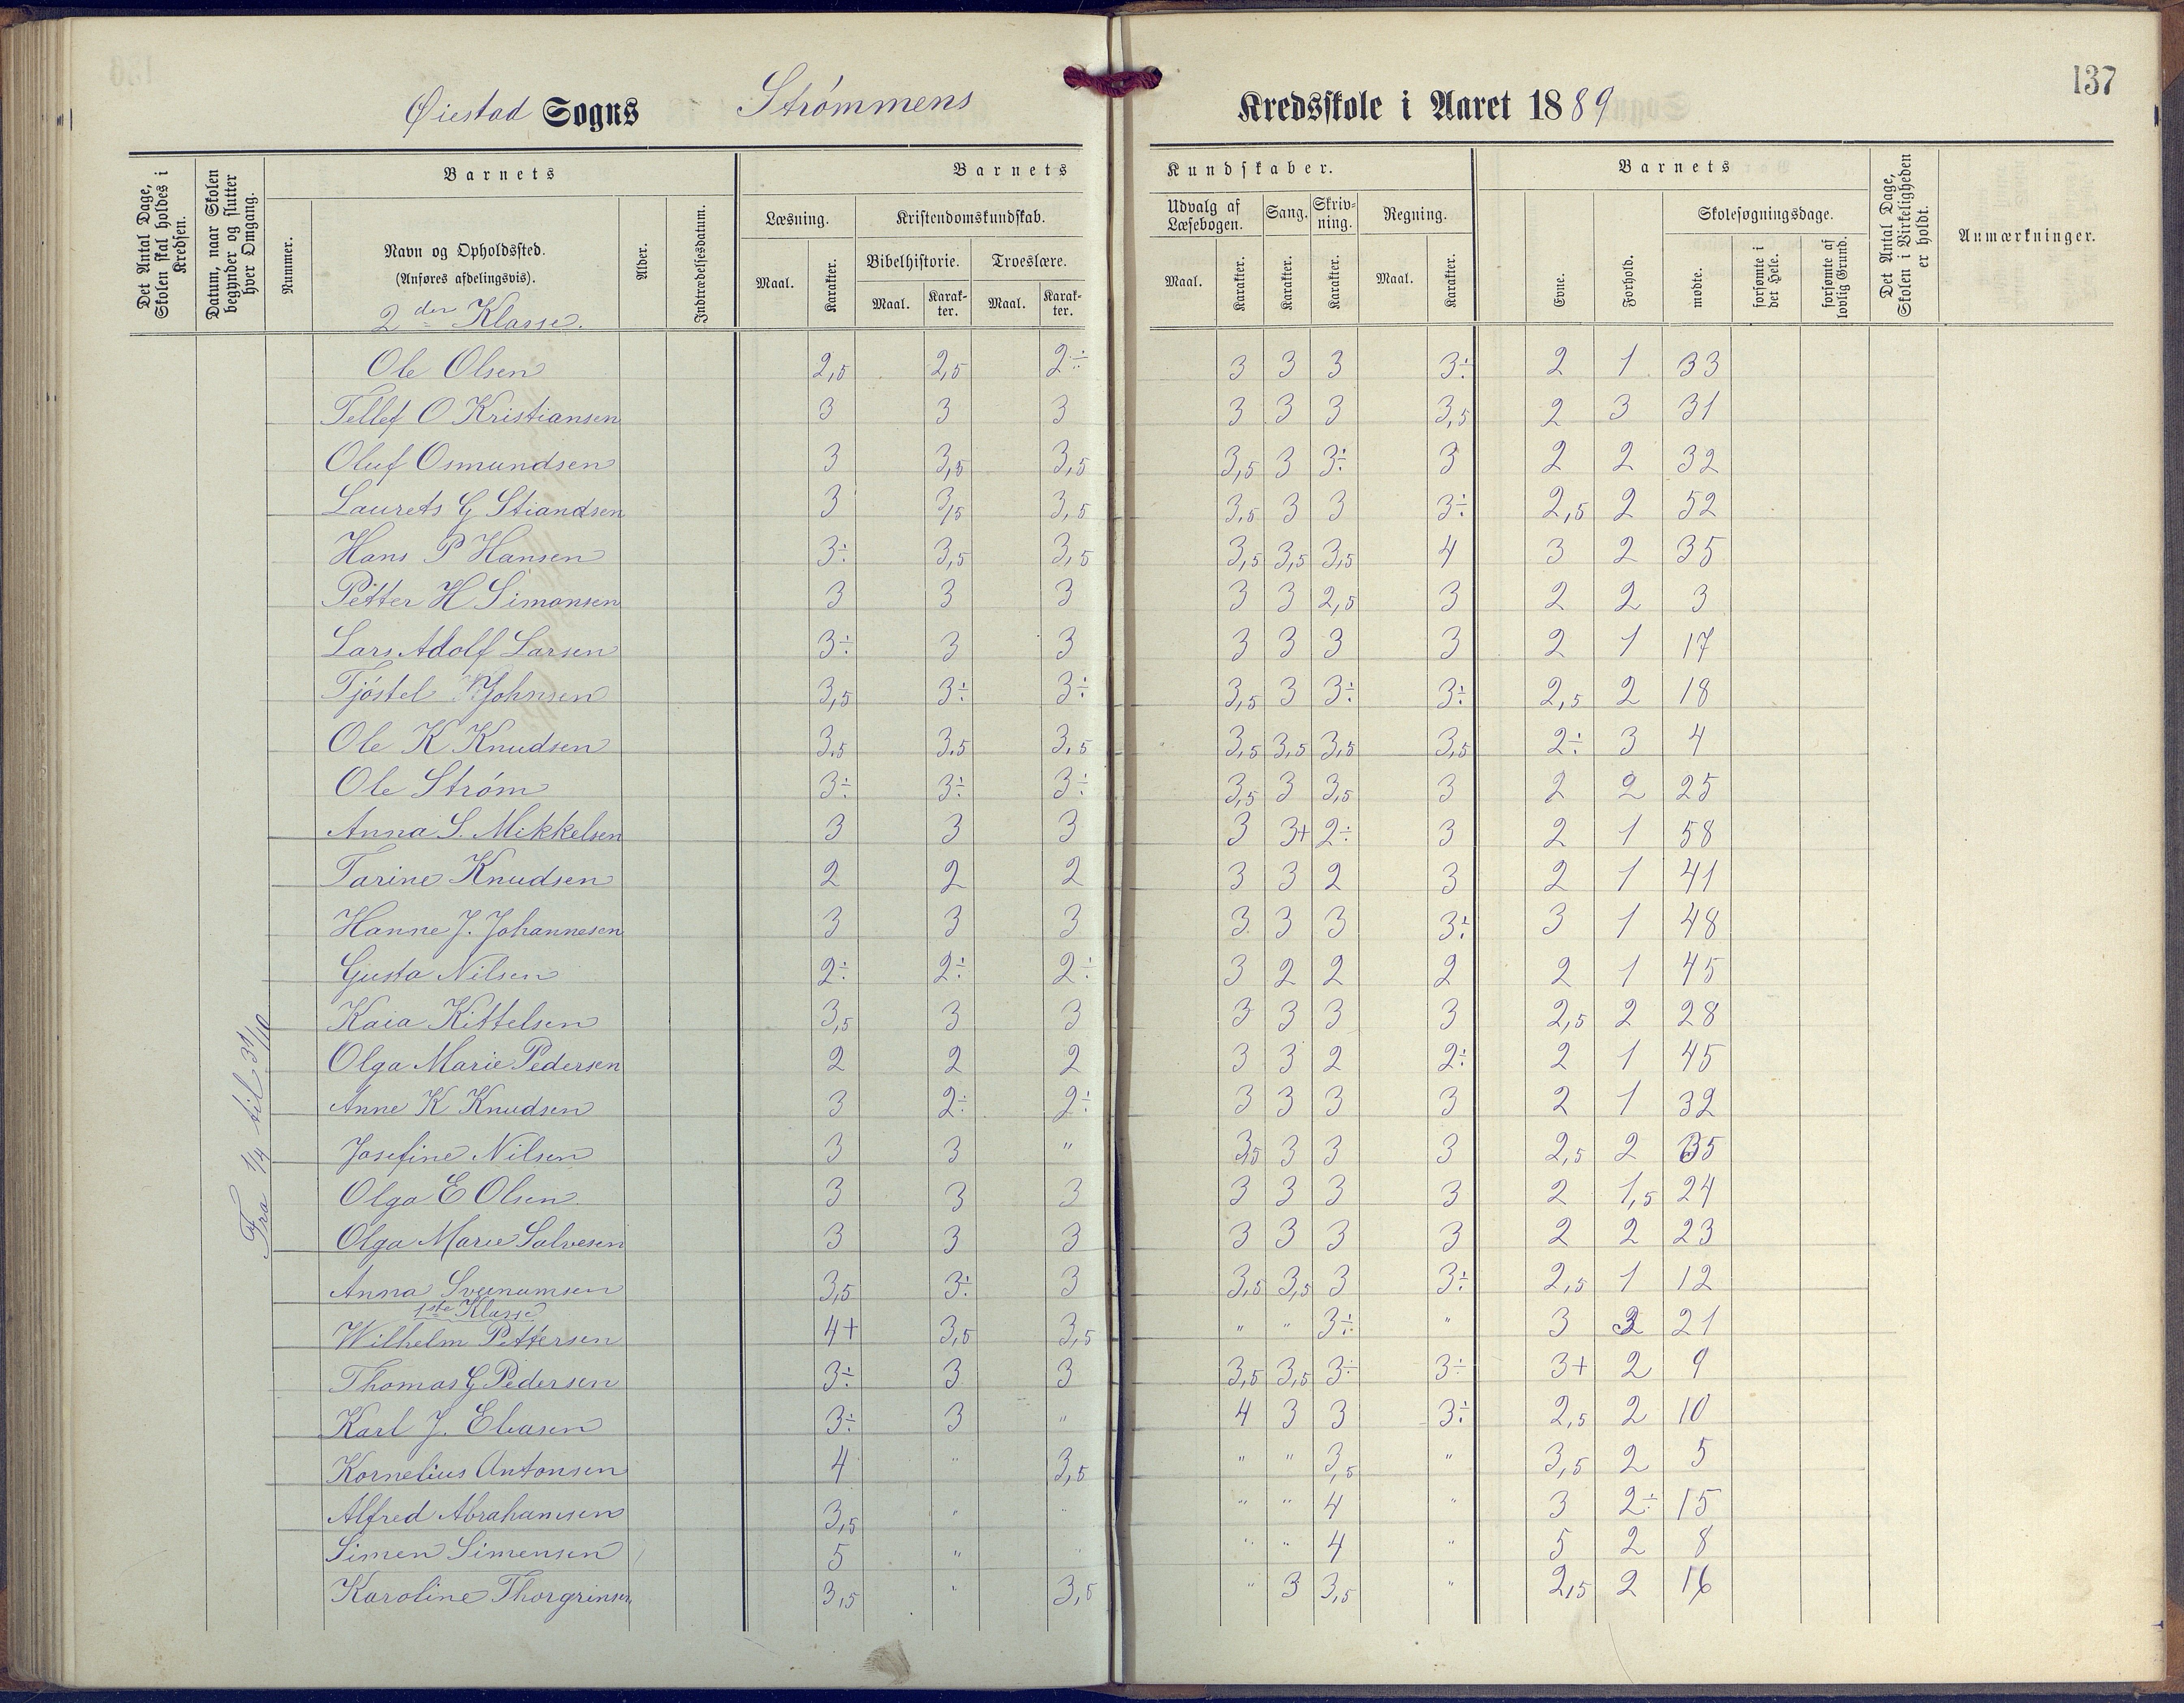 137
Øiestad Sogns Strømmens Kredsskole i Aaret 1889
Det Antal Dage, Skolen skal holdes i Kredsen.
Datum, naar Skolen begynder og slutter hver Omgang.
Nummer.
Barnets
Navn og Opholdssted.
(Anføres afdelingsvis).
2den Klasse.
Alder.
Indtrædelsesdatum.
Barnets Kundskaber.
Læsning. Kristendomskundskab. Udvalg af Læsebogen. Sang. Skrivning. Regning.
Bibelhistorie. Troeslære.
Maal. Karakter. Maal. Karakter. Maal. Karakter. Maal. Karakter. Karakter. Karakter. Maal. Karakter.
Barnets
Evne. Forhold. Skolesøgningsdage.
mødte. forsømte i det Hele. forsømte af lovlig Grund.
Det Antal Dage, Skolen i Virkeligheden er holdt.
Anmærkninger.
Fra 1/4 til 31/10
Ole Olsen 2,5 2,5 2÷ 3 3 3 3÷ 2 1 33
Tellef O Kristiansen 3 3 3 3 3 3 3,5 2 3 31
Oluf Osmundsen 3 3,5 3,5 3,5 3 3÷ 3 2 2 32
Laurets G Stiandsen 3 3,5 3,5 3,5 3 3 3÷ 2,5 2 52
Hans P Hansen 3÷ 3,5 3,5 3,5 3,5 3,5 4 3 2 35
Petter H Simonsen 3 3 3 3 3 2,5 3 2 2 3
Lars Adolf Larsen 3÷ 3 3 3 3 3 3 2 1 17
Tjøstel Johnsen 3,5 3÷ 3÷ 3,5 3 3÷ 3÷ 2,5 2 18
Ole K Knudsen 3,5 3,5 3,5 3,5 3,5 3,5 3,5 2÷ 3 4
Ole Strøm 3÷ 3÷ 3÷ 3,5 3 3,5 3 2 2 25
Anna S. Mikkelsen 3 3 3 3 3+ 2÷ 3 2 1 58
Tarine Knudsen 2 2 2 3 3 2 3 2 1 41
Hanne J. Johannesen 3 3 3 3 3 3 3÷ 3 1 48
Gusta Nilsen 2÷ 2÷ 2÷ 3 2 2 2 2 1 45
Kaia Kittelsen 3,5 3 3 3 3 3 3 2,5 2 28
Olga Marie Pedersen 2 2 2 3 3 2 2÷ 2 1 45
Anne K Knudsen 3 2÷ 2÷ 3 3 3 3 2 1 32
Josefine Nilsen 3 3 " 3,5 3 3 3 2,5 2 35
Olga E Olsen 3 3 3 3 3 3 3 2 1,5 24
Olga Marie Salvesen 3 3 3 3 3 3 3 2 2 23
Anna 3,5 3÷ 3 3,5 3,5 3 3÷ 2,5 1 12
1ste Klasse
Wilhelm Pettersen 4+ 3,5 3,5 " " 3÷ " 3 21
Thomas G Pedersen 3÷ 3 3 3,5 3,5 3÷ 3÷ 3+ 2 9
Karl J. Eliasen 3÷ 3 " 4 3 3 3÷ 2,5 2 10
Kornelius Antonsen 4 " 3,5 " " 3,5 " 3,5 2 5
Alfred Abrahamsen 3,5 " " " " 4 " 3 2÷ 15
Simen Simensen 5 " " " " 4 " 5 2 8
Karoline Thorgrimsen 3,5 " 3,5 " 3 3,5 " 2,5 2 16